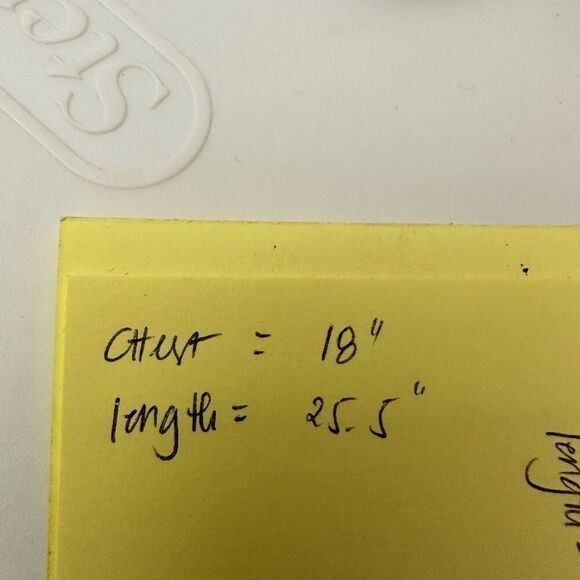 Ster
Chest = 18"
length = 25.5"
length =